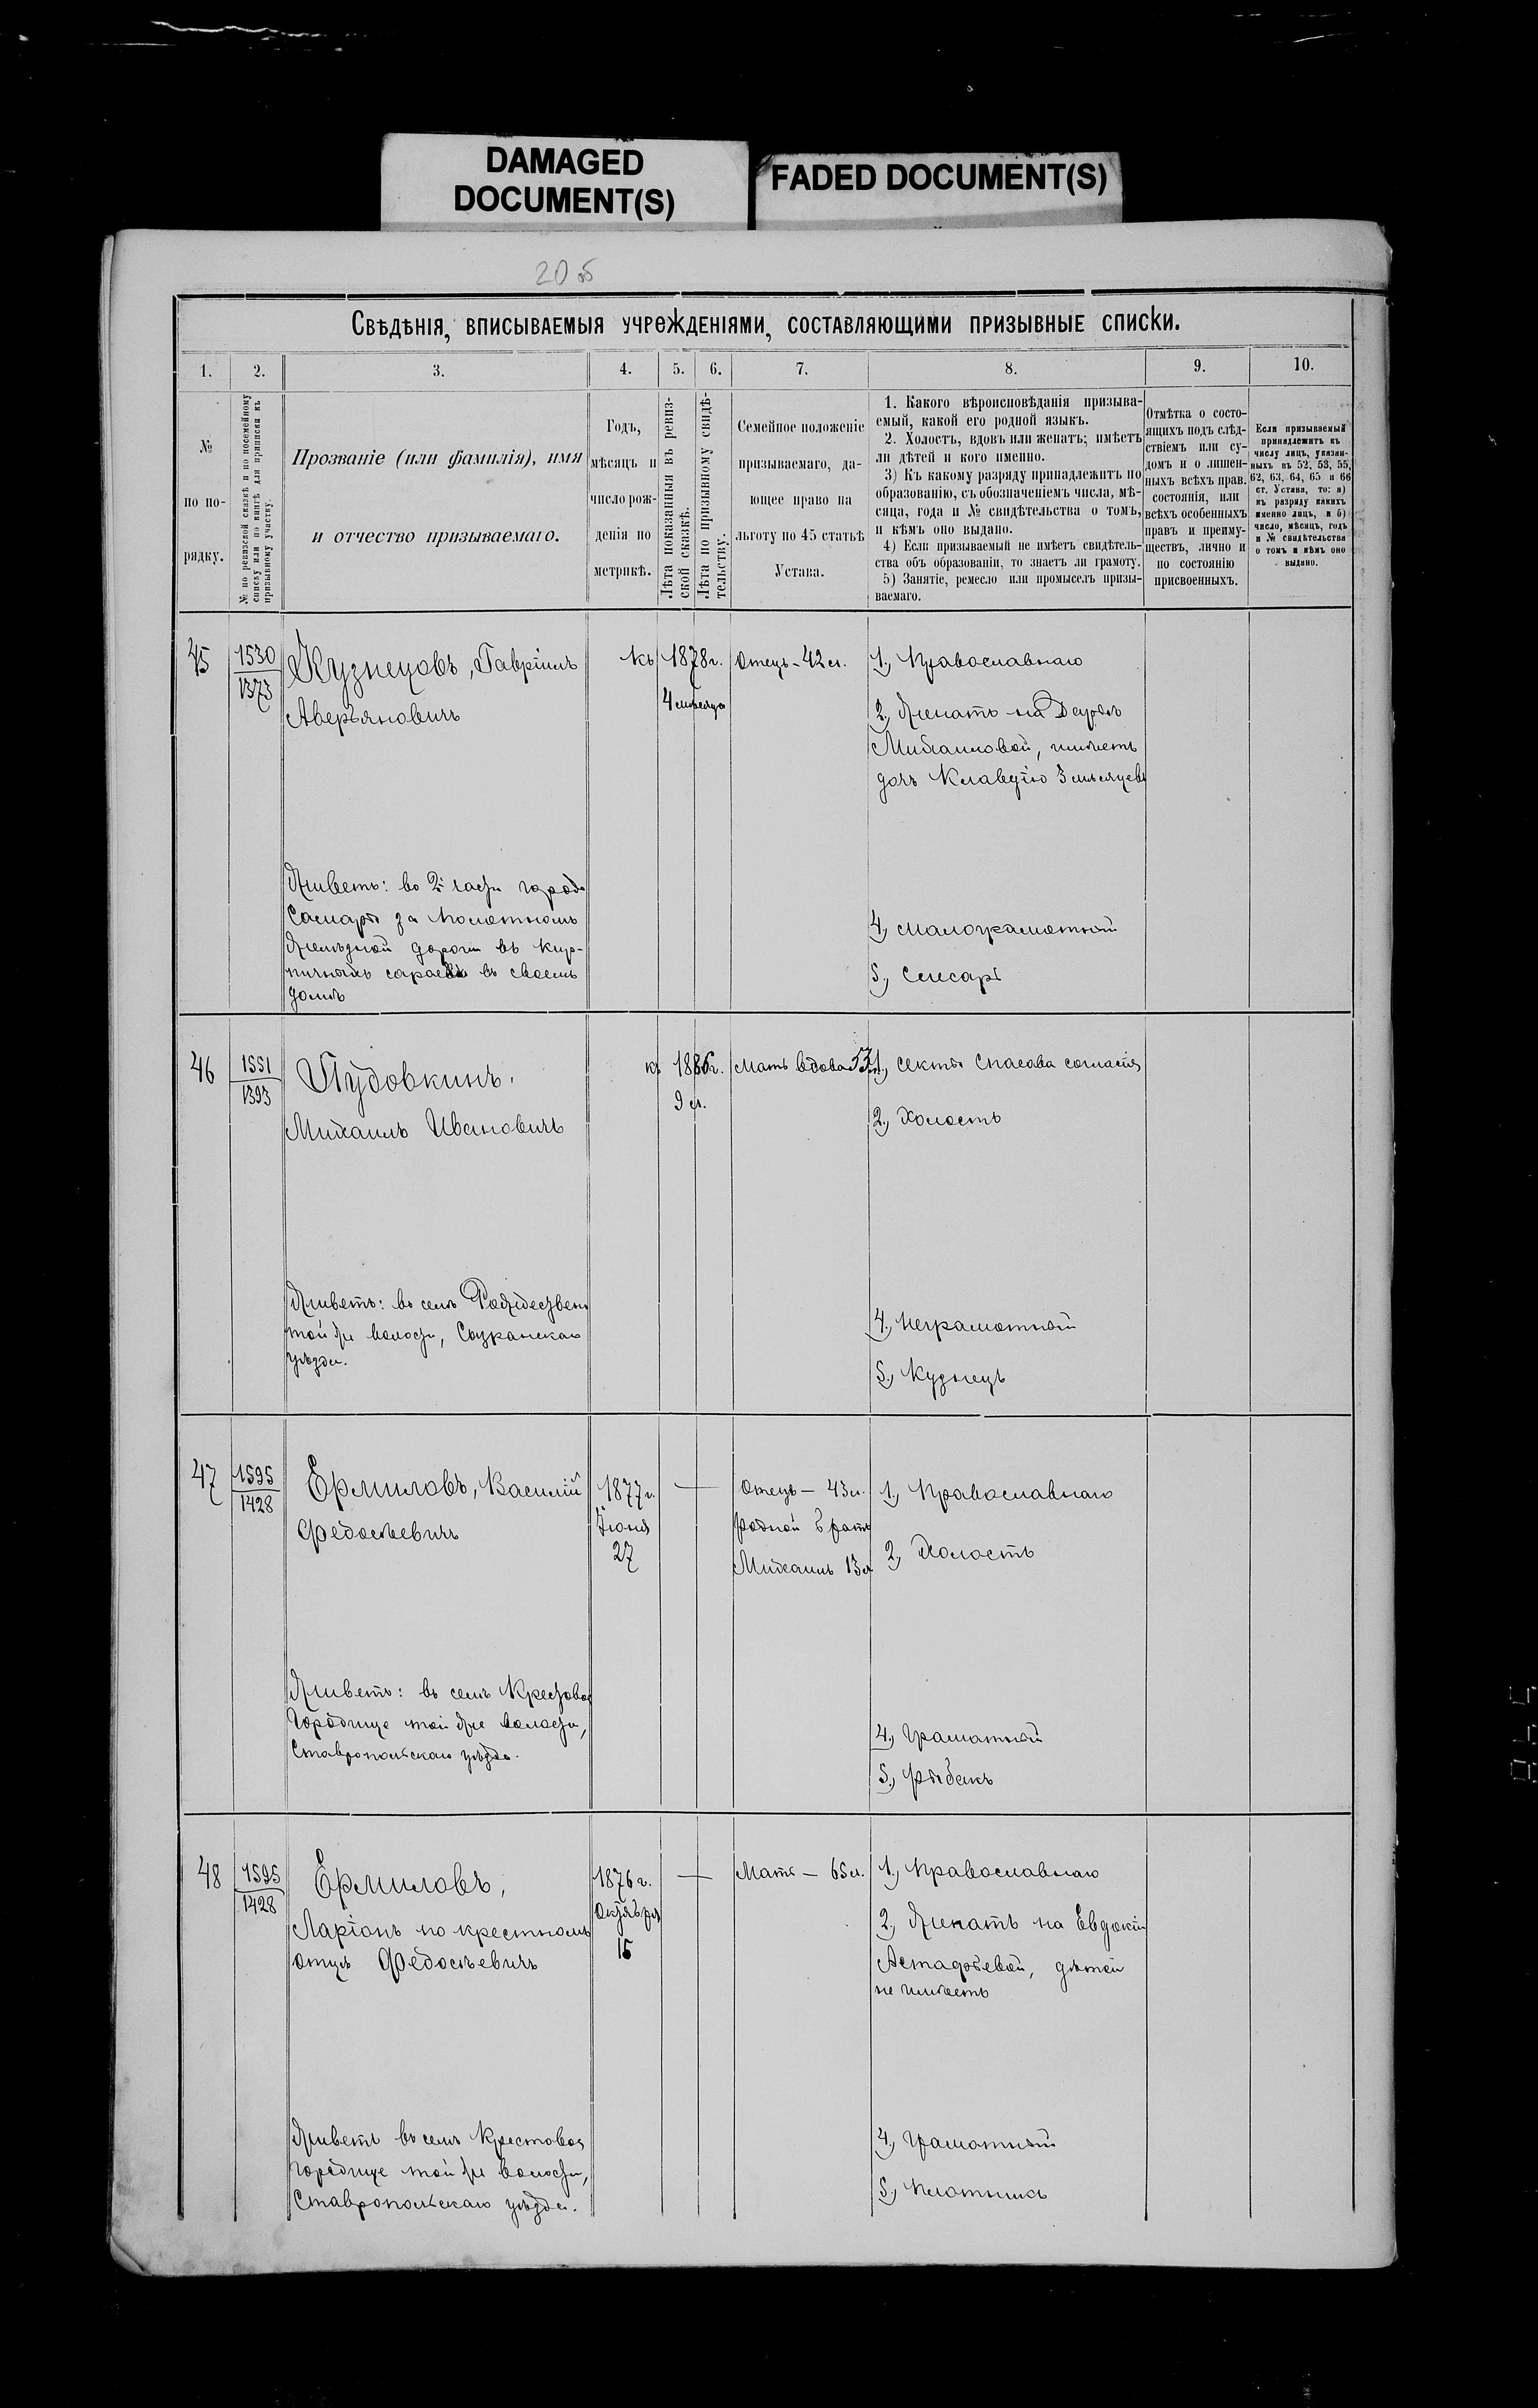 DAMAGED
DOCUMENT(S)
FADED DOCUMENT(S)
20 об
Свѣдѣнія, вписываемыя учрежденіями, составляющими призывные списки.
1. 2. 3. 4. 5. 6. 7. 8. 9. 10.
№
по по-
рядку.
№ по ревизской сказкѣ и по посемейному
списку или по книгѣ для приписки къ
призывному участку.
Прозваніе (или фамилія), имя
и отчество призываемаго.
Годъ,
мѣсяцъ и
число рож-
денія по
метрикѣ.
Лѣта показанныя въ ревиз-
ской сказкѣ.
Лѣта по призывному свидѣ-
тельству.
Семейное положеніе
призываемаго, да-
ющее право на
льготу по 45 статьѣ
Устава.
1. Какого вѣроисповѣданія призыва-
емый, какой его родной языкъ.
2. Холостъ, вдовъ или женатъ; имѣетъ
ли дѣтей и кого именно.
3) Къ какому разряду принадлежитъ по
образованію, съ обозначеніемъ числа, мѣ-
сяца, года и № свидѣтельства о томъ,
и кѣмъ оно выдано.
4) Если призываемый не имѣетъ свидѣтель-
ства объ образованіи, то знаетъ ли грамоту.
5) Занятіе, ремесло или промыселъ призы-
ваемаго.
Отмѣтка о состо-
ящихъ подъ слѣд-
ствіемъ или су-
домъ и о лишен-
ныхъ всѣхъ прав.
состоянія, или
всѣхъ особенныхъ
правъ и преиму-
ществъ, лично и
по состоянію
присвоенныхъ.
Если призываемый
принадлежитъ къ
числу лицъ, указан-
ныхъ въ 52, 53, 55,
62, 63, 64, 65 и 66
ст. Устава, то: а)
къ разряду какихъ
именно лицъ, и б)
число, мѣсяцъ, годъ
и № свидѣтельства
о томъ и кѣмъ оно
выдано.
45
1530
1373
Кузнецовъ, Гавріилъ
Аверьяновичъ
Живетъ: во 2й части города
Самары за полотномъ
Желѣзной дороги въ кир-
пичныхъ сараяхъ въ своемъ
домѣ
Къ 1878 г.
4 мѣсяца
Отецъ - 42 л.
1., Православнаго
2., Женатъ на
Михаиловой, имѣетъ
дочь Клавдію 3 мѣсяцевъ
4., малограмотный
5., Слесарь
46
1551
1393
Пудовкинъ,
Михаилъ Ивановичъ
Живетъ: въ селѣ Рождествен
той же волости, Сызранскаго
уѣзда.
к 1886 г.
9 л.
Мать вдова 53 л.
1., секты Спасова согласія
2., Холостъ
4., Неграмотный
5., Кузнецъ
47
1595
1428
Ермиловъ, Василій
Федосѣевичъ
Живетъ: въ селѣ Крестовое
Городище той же волости,
Ставропольскаго уѣзда.
1877 г.
Іюня
27
—
Отецъ — 43 л.
родной братъ
Михаилъ 13 л
1., Православнаго
2., Холостъ
4., Грамотный
5., Рыбакъ
48
1595
1428
Ермиловъ,
Ларіонъ по крестному
отцу Федосѣевичъ
Живетъ въ селѣ Крестовое
городище той же волости,
Ставропольскаго уѣзда.
1876 г.
Октября
15
—
Мать — 65 л.
1., Православнаго
2., Женатъ на Евдокіи
Астафьевой, дѣтей
не имѣетъ
4., Грамотный
5., Плотникъ